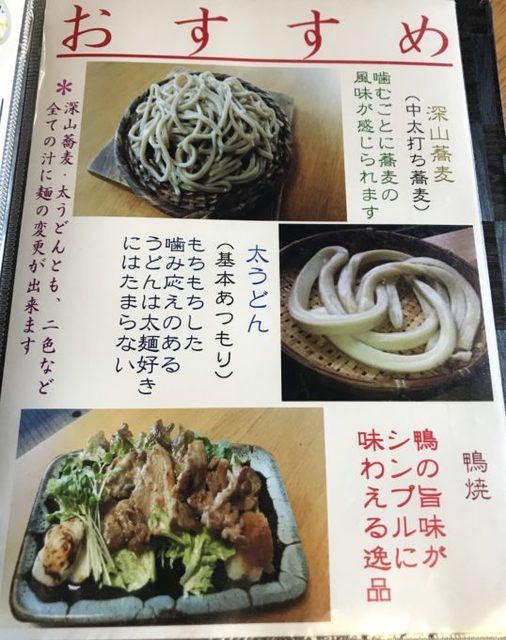 おすすめ
深山蕎麦
(中太打ち蕎麦)
噛むごとに蕎麦の
風味が感じられます
*深山蕎麦・太うどんとも、二色など
全ての汁に麺の変更が出来ます
太うどん
(基本あつもり)
もちもちした
噛み応えのある
うどんは太麺好き
にはたまらない
鴨焼
鴨の旨味が
シンプルに
味わえる逸品